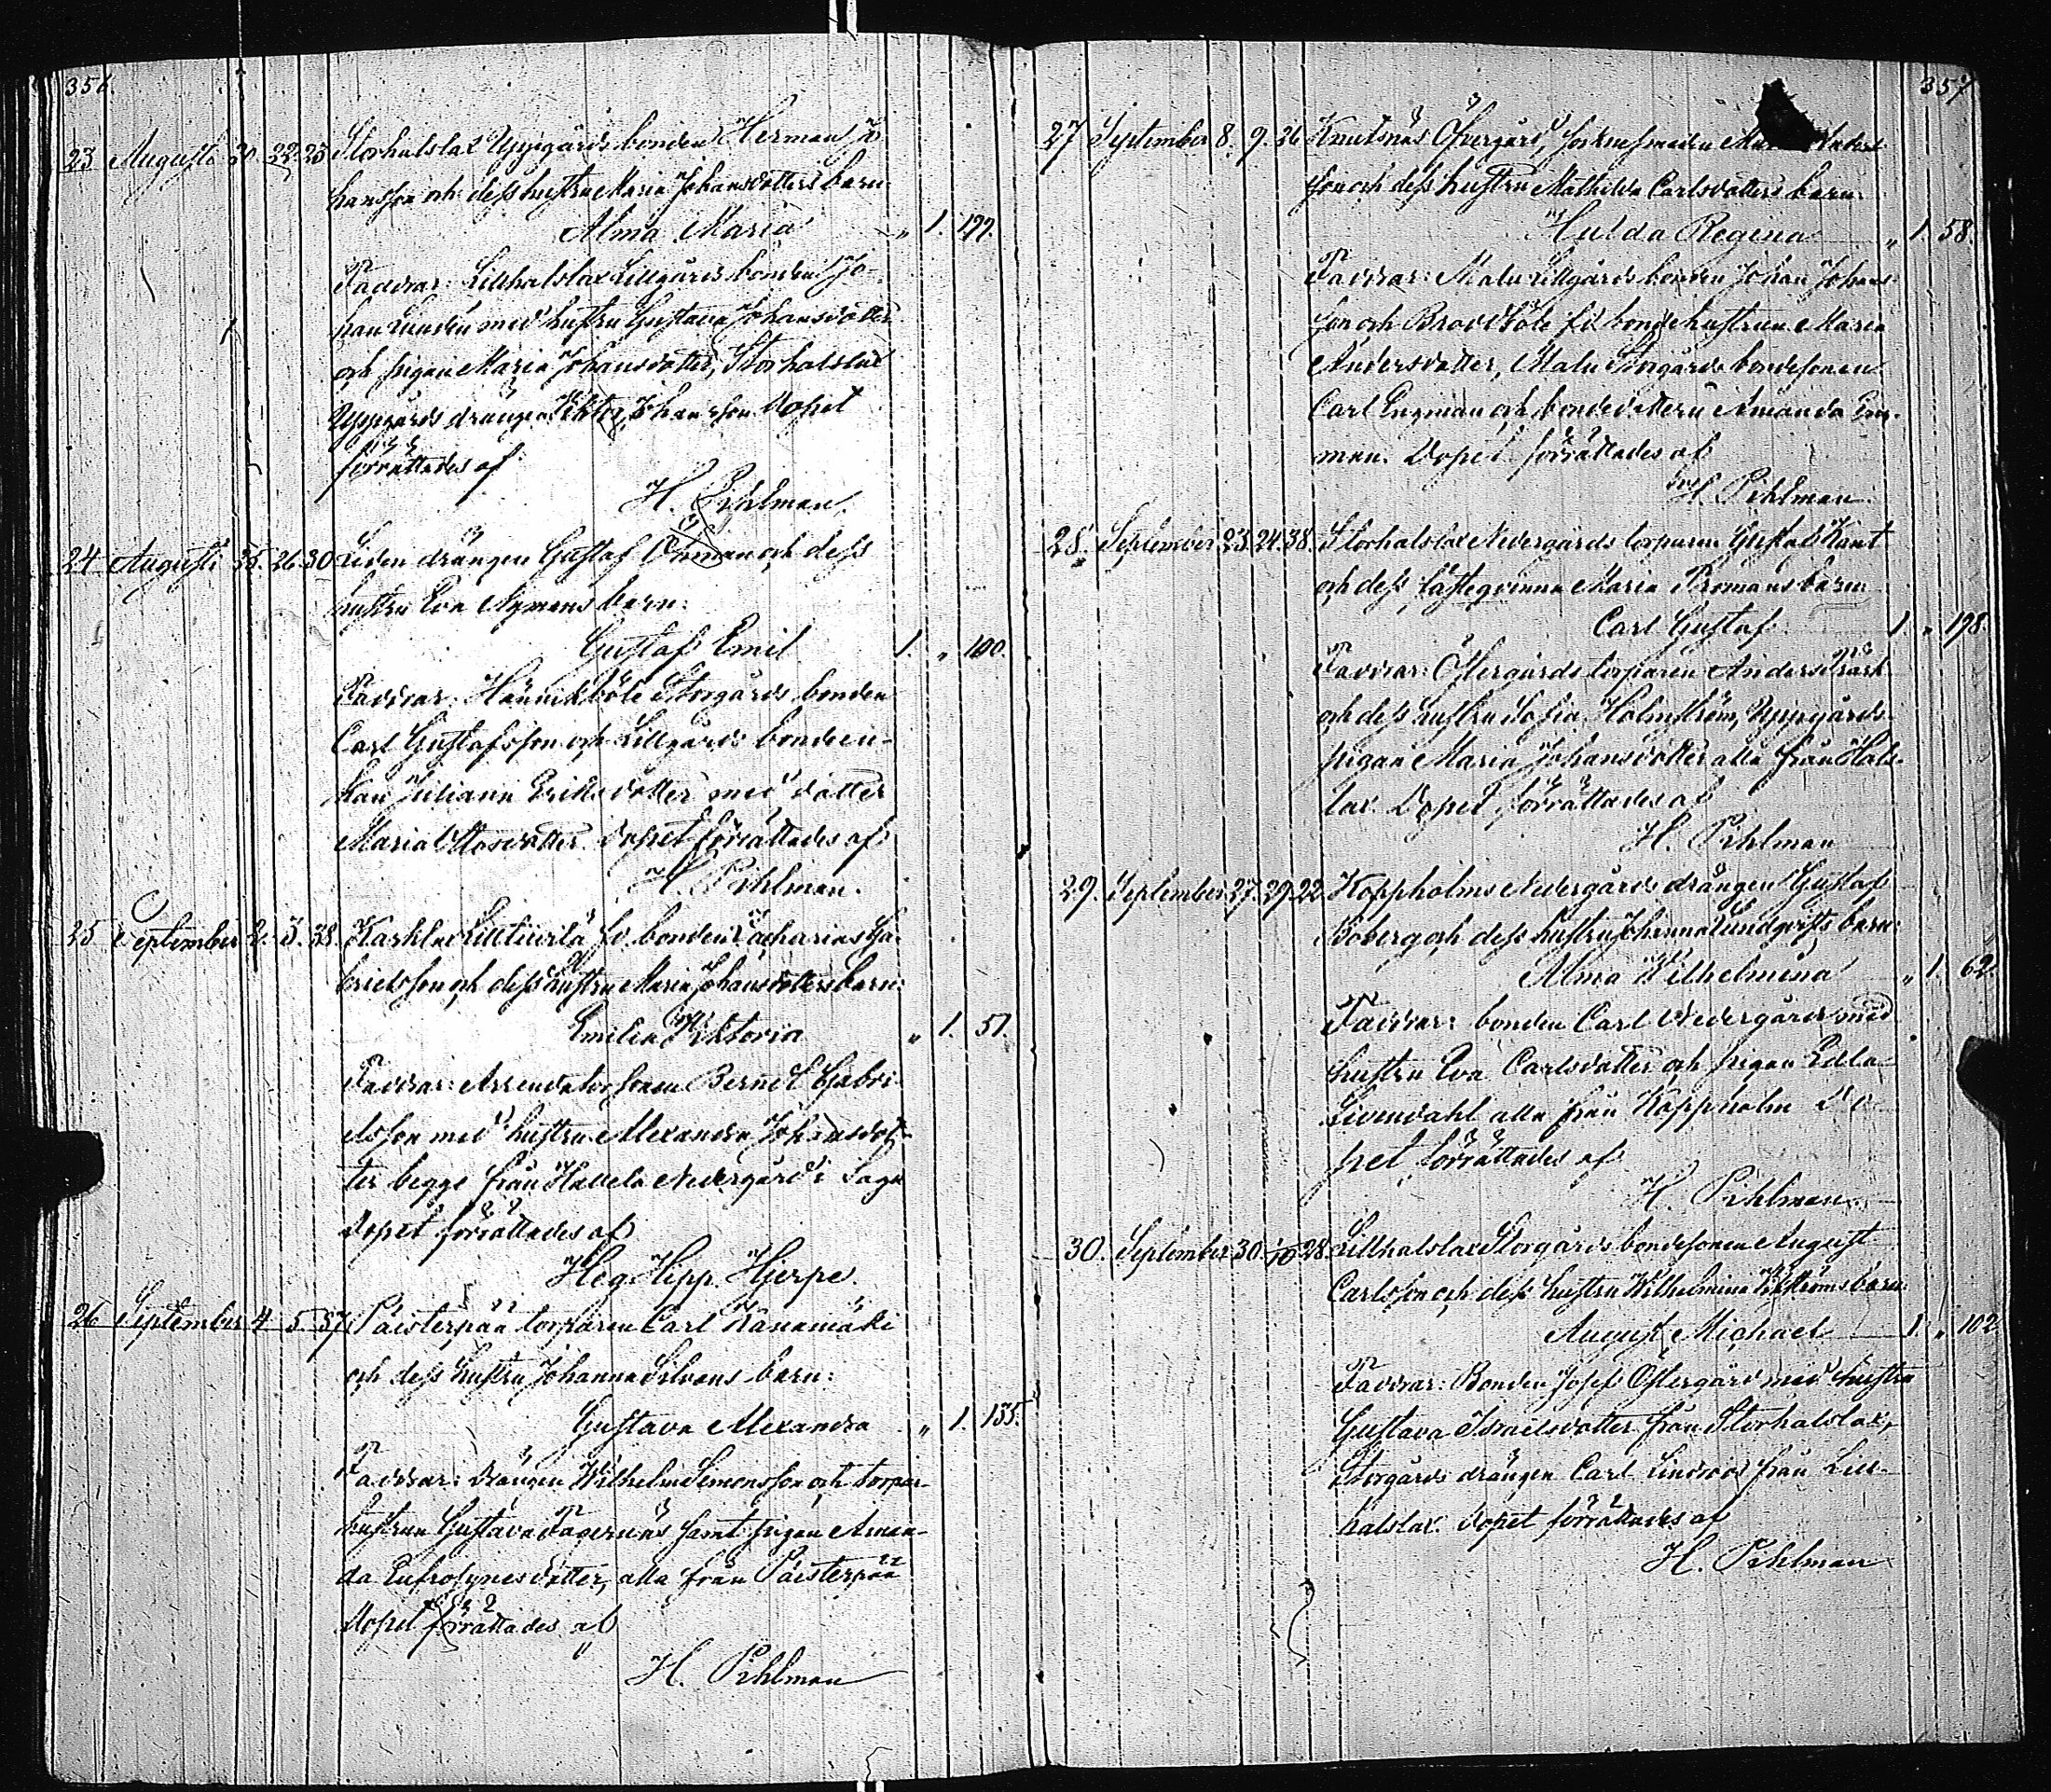 356.
23 Augusti 20. 22. 23 Storhalslax Uppgårds bonden Herman Jo
hansson och dess hustru Maria Johansdotters barn
Alma Maria " 1. 177.
Faddrar: Lillhalslax Lillgårds bonden Jo-
han Lundén med hustru Gustava Johansdotter
och pigan Maria Johansdotter, Storhalslax
Uppgårds drängen Viktor Johansson. Dopet
förrättades af
H. Pihlman.
24 Augusti 25. 26. 30 Liden drängen Gustaf Öhman och dess
hustru Eva Nymans barn:
Gustaf Emil 1. " 100.
Faddrar: Hännicksböle Storgårds bonden
Carl Gustafsson och Lillgårds bondeen-
kan Juliana Eriksdotter med dotter
Maria Ottosdotter. Dopet förrättades af
H. Pihlman.
25 September 2. 3. 38. Karhlax Lilltivilä fd. bonden Zacharias Ga-
brielsson och dess hustru Maria Johansdotters barn:
Emilia Viktoria " 1. 51.
Faddrar: Arrendatorsonen Berndt Gabri-
elsson med hustru Alexandra Johansdot-
ter begge från Nedergård i Sagu
Dopet förrättades af
Heg. Hipp. Hjerpe.
26 September 4 5. 37 Päisterpää torparen Carl Kanamäki
och dess hustru Johanna Silvens barn:
Gustava Alexandra " 1. 135.
Faddrar: drängen Wilhelm Semonsson och torpar-
hustrun Gustava Fagernäs samt pigan Aman-
da Eufrosynesdotter, alla från Päisterpää
Dopet förrättades af
H. Pihlman
357
27 September 8. 9. 26 Knutsnäs Öfvergård, sockne smeden
son och dess hustru Mathilda Carlsdotters barn.
Hulda Regina " 1. 58.
Faddrar: Malu Lillgårds bonden Johan Johans-
son och Broddböle fd. bondehustrun Maria
Andersdotter, Malu Storgårds bondesonen
Carl Engman och bondedottern Amanda Eng-
man. Dopet förrättades af
H. Pihlman.
28. September 23. 24. 38. Storhalslax Nedergårds torparen Gustaf Kant
och dess fästeqvinna Maria Bromans barn
Carl Gustaf 1. " 198.
Faddrar: Östergårds torparen Anders Träsk
och dess hustru Sofia Holmström, Uppgårds
pigan Maria Johansdotter alla från Hals-
lax. Dopet förrättades af
H. Pihlman
29. September 27. 29. 22 Koppholms Nedergårds drängen Gustaf
Boberg och dess hustru Johanna Lundqvists barn:
Alma Wilhelmina " 1. 62.
Faddrar: bonden Carl Nedergård med
hustru Eva Carlsdotter och pigan Edla
Livendahl alla från Koppholm Do-
pet förrättades af
H. Pihlman.
30. September 30. 1/10 28. Lillhalslax Storgårds bondesonen August
Carlsson och dess hustru Wilhelmina Wikströms barn
August Michael 1. " 102
Faddrar: Bonden Josef Östergård med hustru
Gustava Israelsdotter från Storhalslax,
Storgårds drängen Carl Lindroos från Lill-
halslax. Dopet förrättades af
H. Pihlman